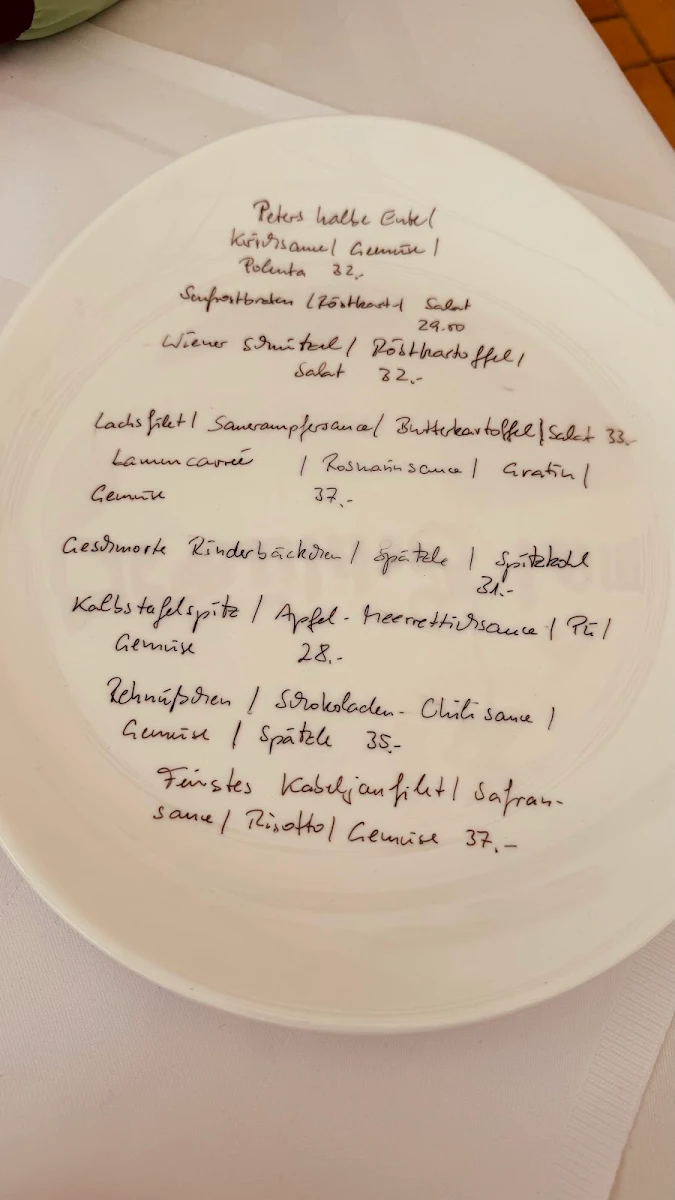 Peters halbe Ente /
Kirschsauce / Gemüse /
Polenta 32.-
Senfrostbraten / Röstkart. / Salat
29.00
Wiener Schnitzel / Röstkartoffel /
Salat 32.-
Lachsfilet / Sauerampfersauce / Butterkartoffel / Salat 33.-
Lammcarrée / Rosmarinsauce / Gratin /
Gemüse 37.-
Geschmorte Rinderbäckchen / Spätzle / Spitzkohl
31.-
Kalbstafelspitz / Apfel-Meerrettichsauce / Pü /
Gemüse 28.-
Rehnüßchen / Schokoladen-Chilisauce /
Gemüse / Spätzle 35.-
Feinstes Kabeljaufilet / Safran-
sauce / Risotto / Gemüse 37.-